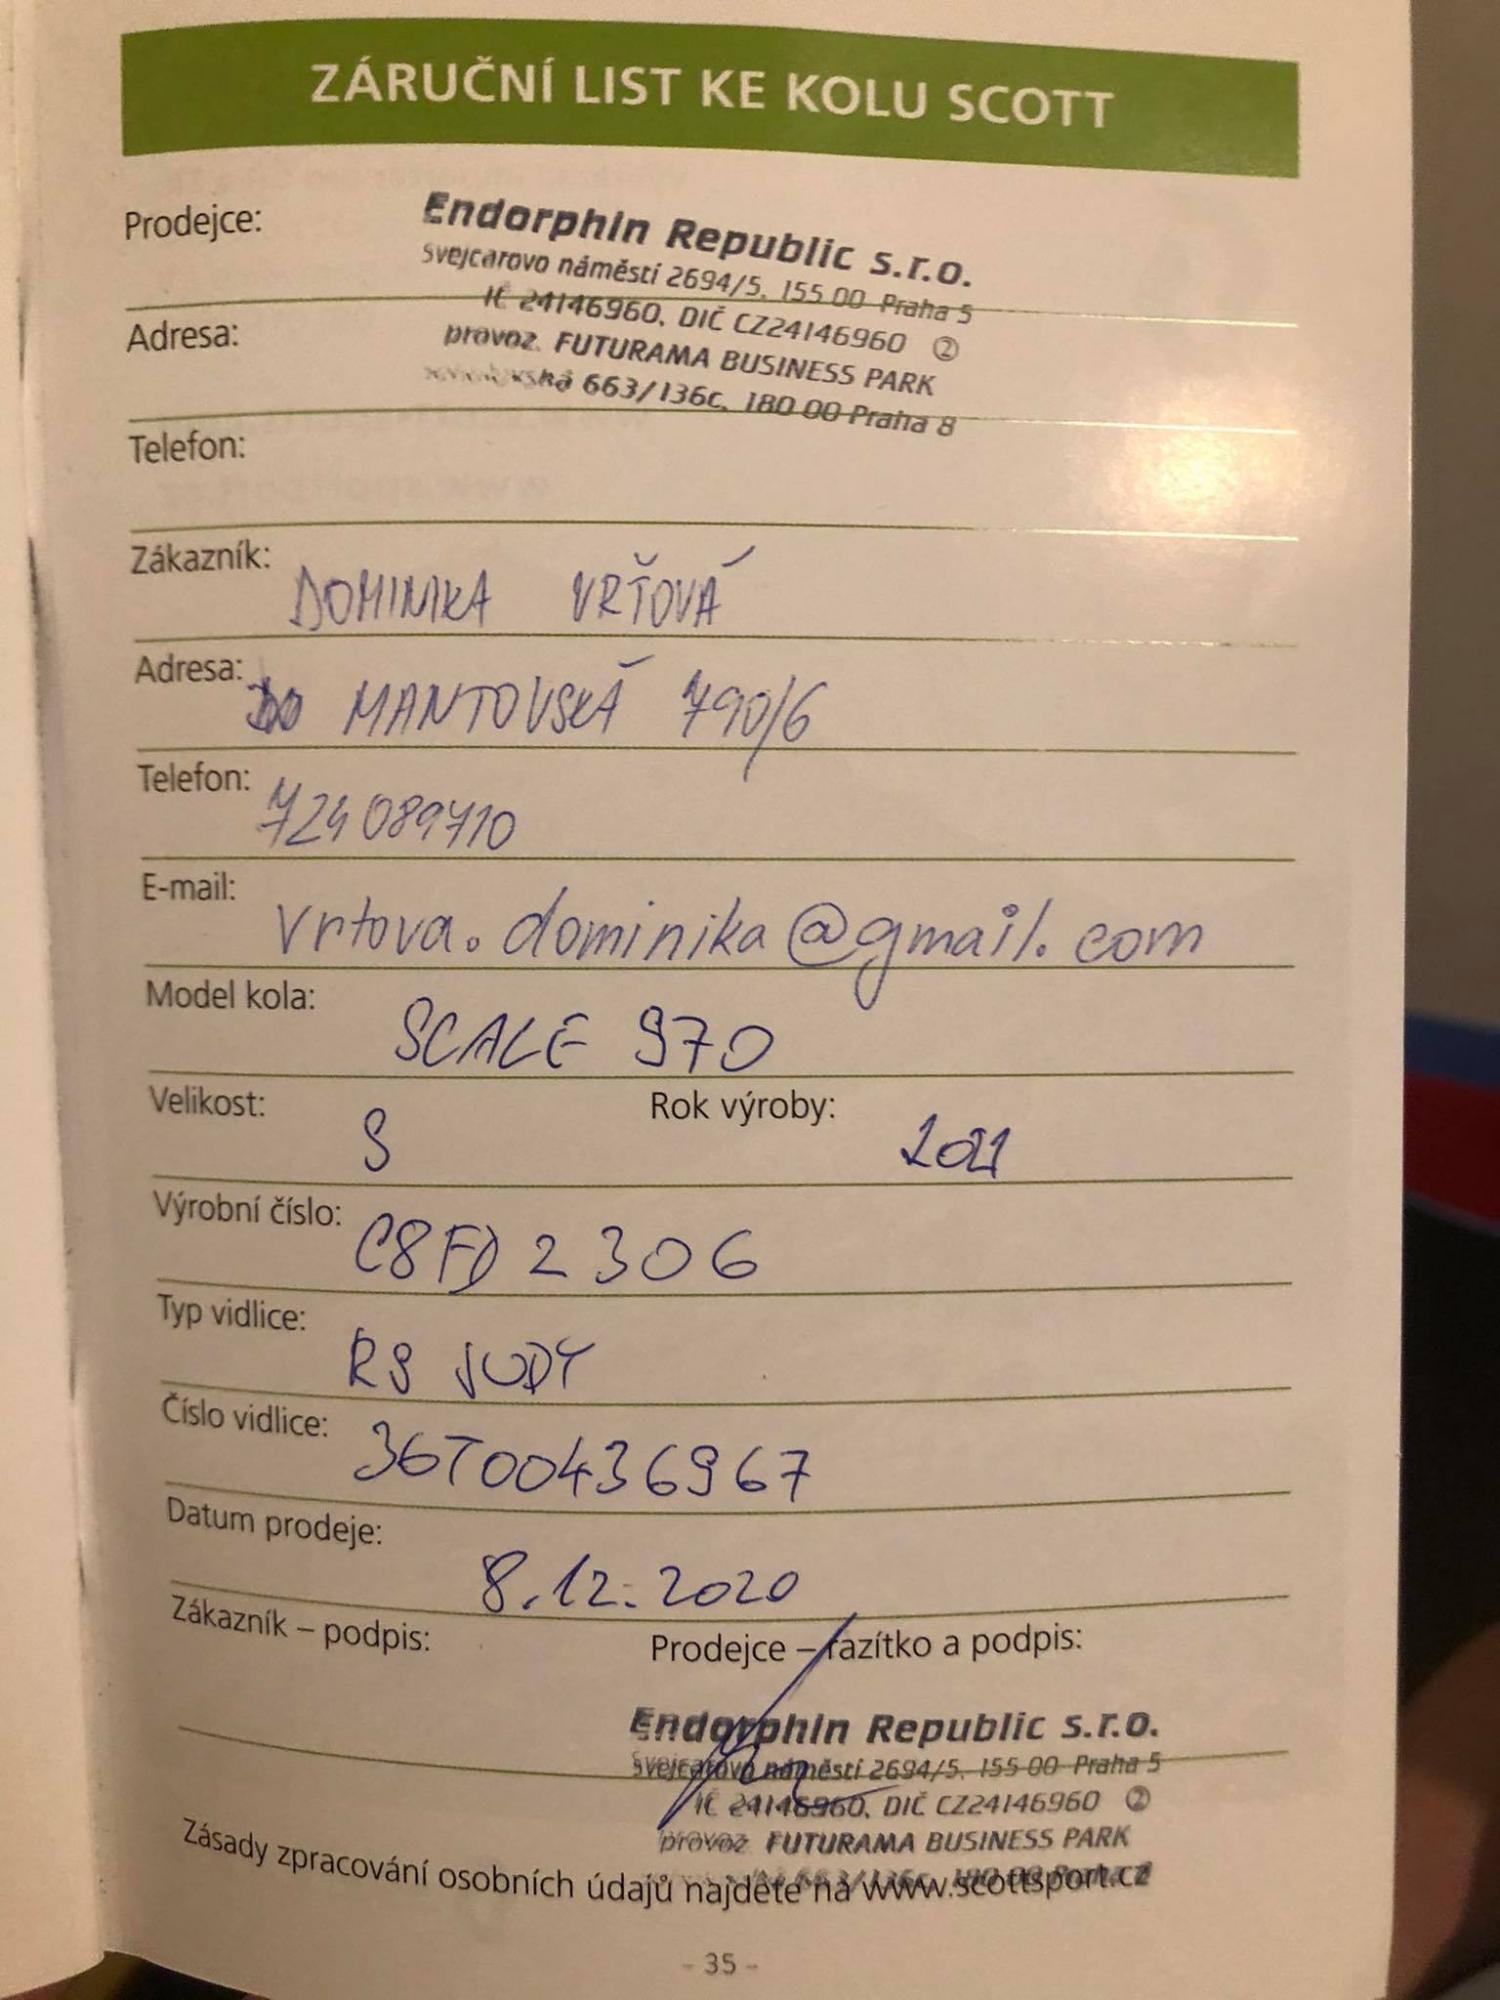 ZÁRUČNÍ LIST KE KOLU SCOTT
Prodejce:
Endorphin Republic s.r.o.
Svejcarovo náměstí 2694/5, 155 00 Praha 5
IČ 24146960, DIČ CZ24146960 ②
Adresa:
provoz. FUTURAMA BUSINESS PARK
663/136c, 180 00 Praha 8
Telefon:
Zákazník: DOMINIKA VRŤOVÁ
Adresa: MANTOVSKÁ 790/6
Telefon: 724089710
E-mail: vrtova.dominika@gmail.com
Model kola: SCALE 970
Velikost: S Rok výroby: 2021
Výrobní číslo: C8FD2306
Typ vidlice: RS JUDY
Číslo vidlice: 36T00436967
Datum prodeje: 8.12.2020
Zákazník – podpis: Prodejce – razítko a podpis:
Endorphin Republic s.r.o.
Svejcarovo náměstí 2694/5, 155 00 Praha 5
IČ 24146960, DIČ CZ24146960 ②
provoz FUTURAMA BUSINESS PARK
663/136c, 180 00 Praha 8
Zásady zpracování osobních údajů najdete na www.scottsport.cz
- 35 -